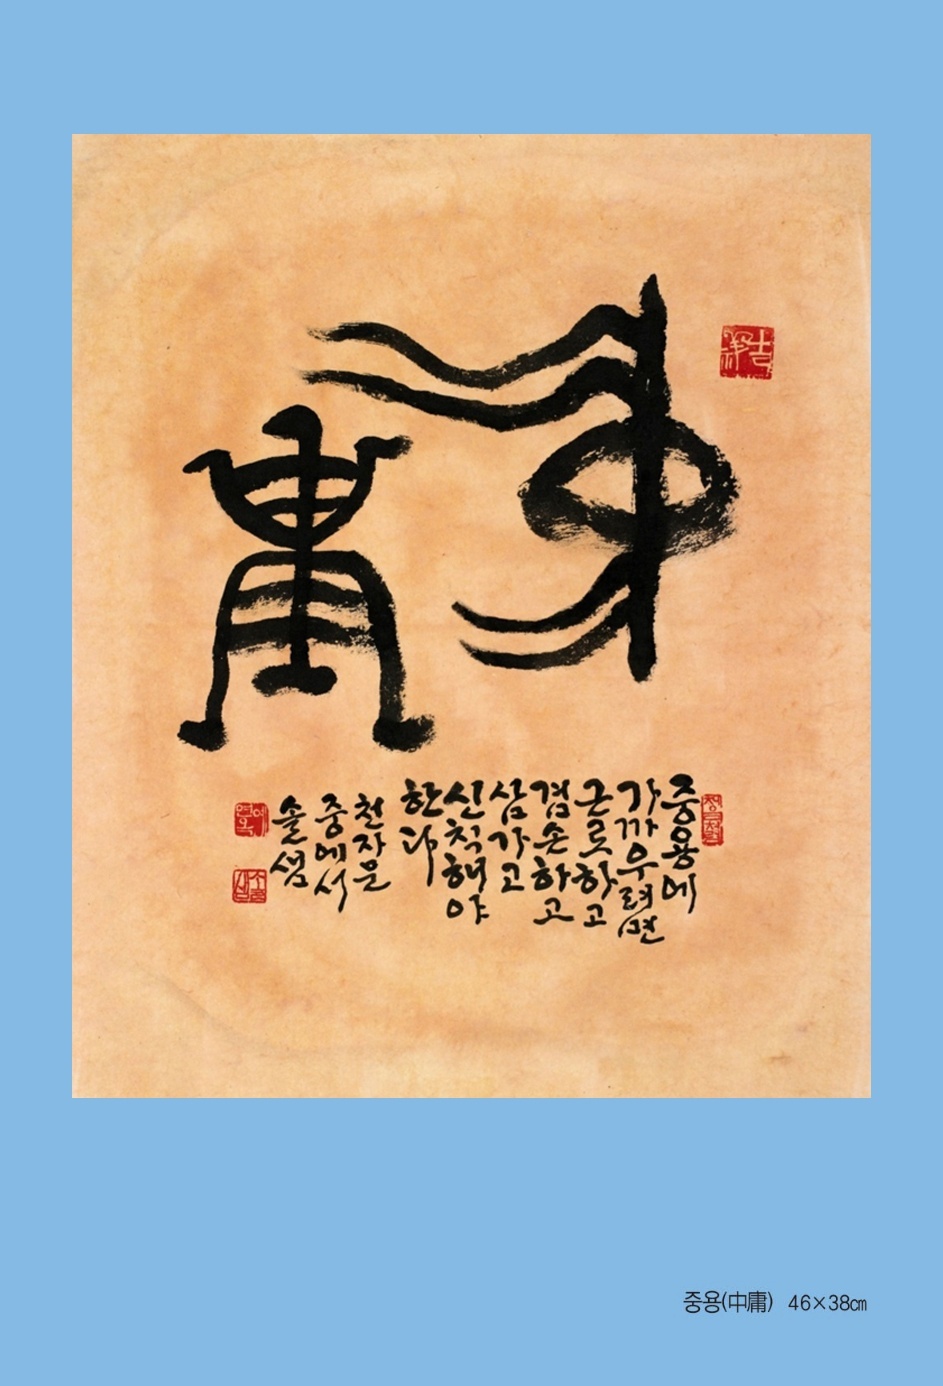 中庸
중용에
가까우려면
근로하고
겸손하고
삼가고
신칙해야
한다
천자문
중에서
솔샘
중용(中庸) 46×38㎝